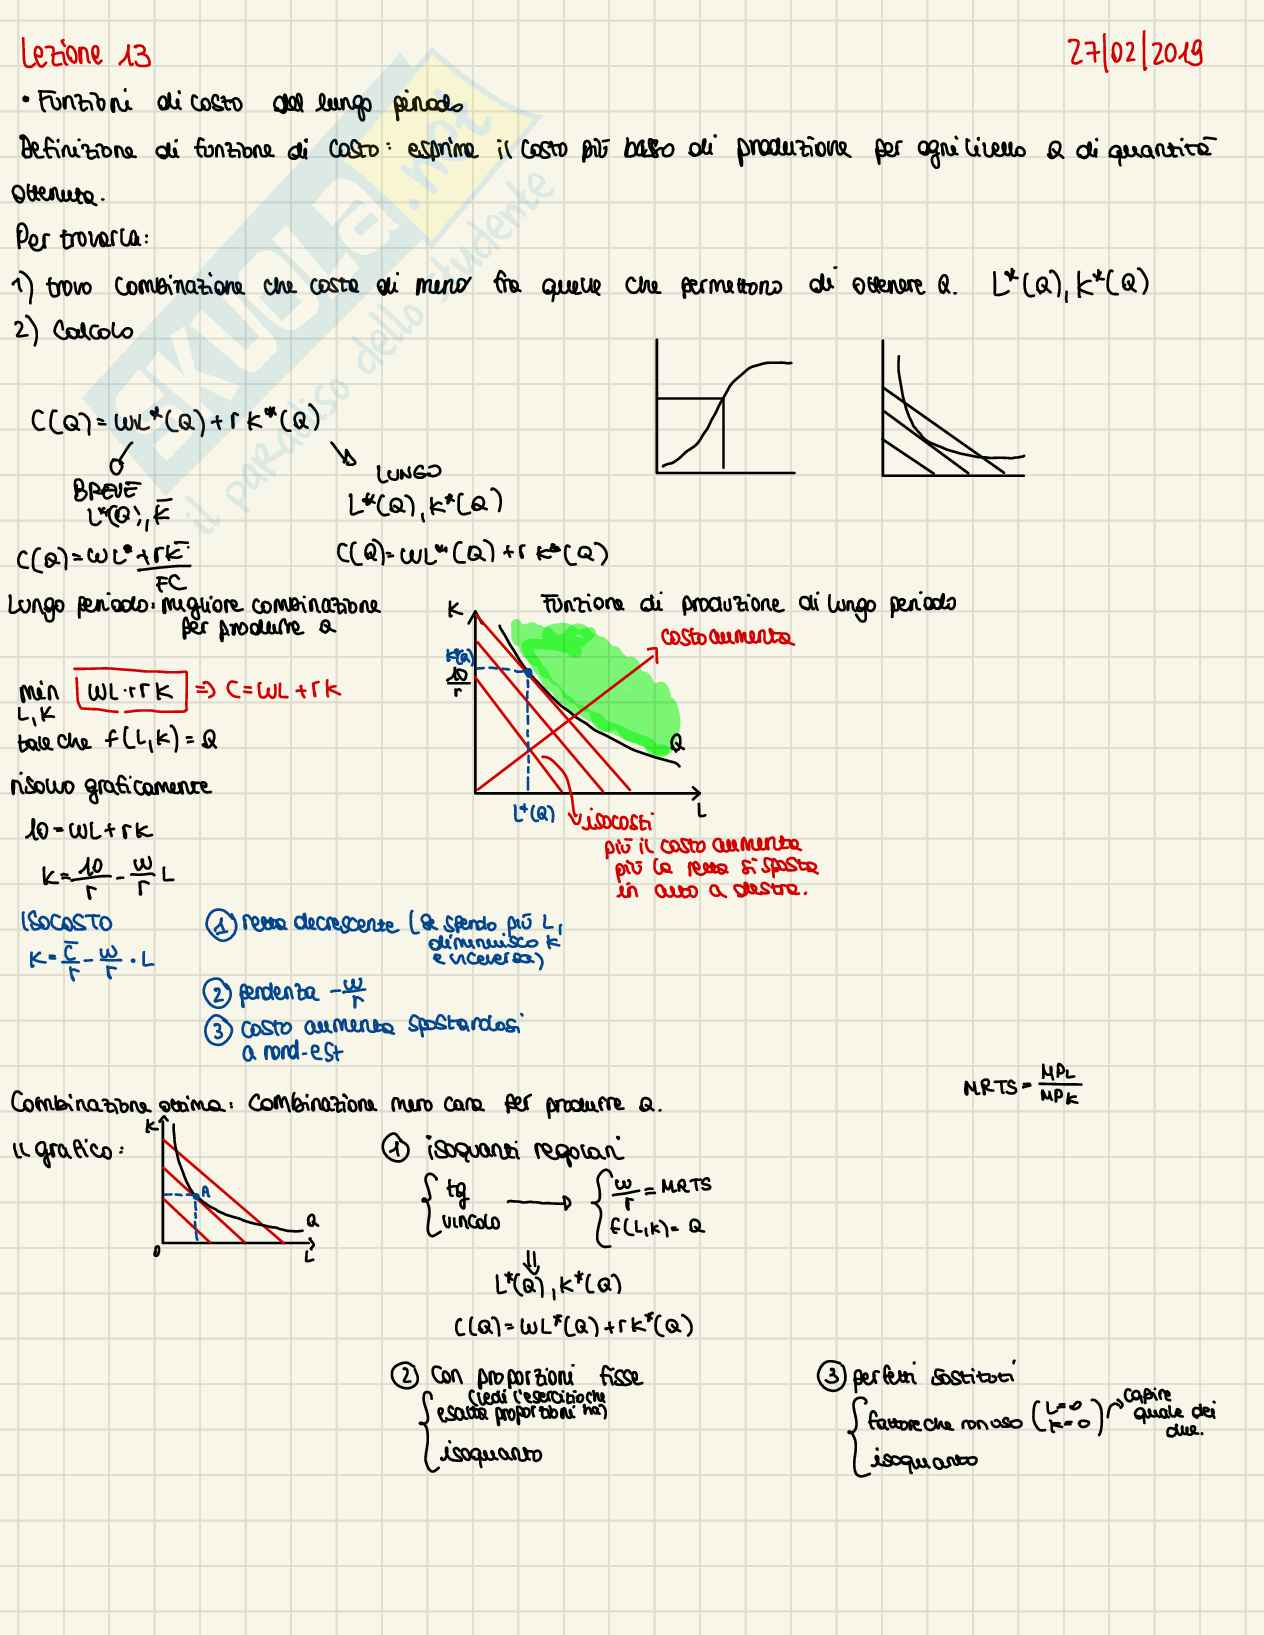 Lezione 13
27/02/2019
• Funzioni di costo del lungo periodo
Definizione di funzione di costo: esprime il costo più basso di produzione per ogni livello Q di quantità
ottenuta.
Per trovarla:
1) trovo combinazione che costa di meno fra quelle che permettono di ottenere Q. L*(Q), K*(Q)
2) Calcolo
C(Q) = WL*(Q) + rK*(Q)
BREVE
L*(Q), K̅
LUNGO
L*(Q), K*(Q)
C(Q) = WL* + rK̅
FC
C(Q) = WL*(Q) + r K*(Q)
Lungo periodo: migliore combinazione
per produrre Q
Funzione di produzione di lungo periodo
K
K*(Q)
10/r
costo aumenta
Q
L*(Q)
L
isocosti
più il costo aumenta
più la retta si sposta
in alto a destra.
min WL + rK => C = WL + rK
L, K
tale che f(L,K) = Q
risolvo graficamente
10 = WL + rK
K = 10/r - W/r L
ISOCOSTO
K = C̅/r - W/r · L
① retta decrescente (se spendo più L,
diminuisco K
e viceversa)
② pendenza - W/r
③ costo aumenta spostandosi
a nord-est
MRTS = MPL/MPK
Combinazione ottima: combinazione meno cara per produrre Q.
Il grafico:
K
A
Q
0
L
① isoquanti regolari
tg
vincolo
W/r = MRTS
f(L,K) = Q
L*(Q), K*(Q)
C(Q) = WL*(Q) + rK*(Q)
② con proporzioni fisse
(vedi l'esercizio che
esatta proporzioni ha)
isoquanto
③ perfetti sostituti
fattore che non uso (L=0
K=0)
capire
quale dei
due.
isoquanto
SKUOLA.net
il paradiso dello studente